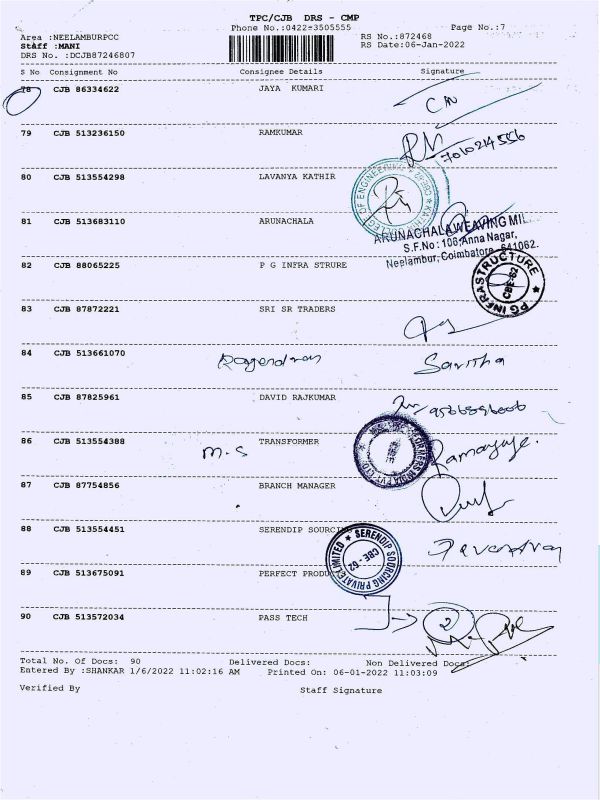 TPC/CJB DRS - CMP
Phone No.:0422-3505555 Page No.:7
Area :NEELAMBURPCC RS No.:872468
Staff :MANI RS Date:06-Jan-2022
DRS No. :DCJB87246807
S No Consignment No Consignee Details Signature
78 CJB 86334622 JAYA KUMARI
79 CJB 513236150 RAMKUMAR
80 CJB 513554298 LAVANYA KATHIR
81 CJB 513683110 ARUNACHALA
ARUNACHALA WEAVING MIL
S.F.No : 106, Anna Nagar,
Neelambur, Coimbatore 641062.
82 CJB 88065225 P G INFRA STRURE
PG INFRASTRUCTURE
CBE-62
83 CJB 87872221 SRI SR TRADERS
84 CJB 513661070 Savitha
85 CJB 87825961 DAVID RAJKUMAR
86 CJB 513554388 M.S TRANSFORMER
87 CJB 87754856 BRANCH MANAGER
88 CJB 513554451 SERENDIP SOURCING
SERENDIP SOURCING PRIVATE LIMITED
CBE - 62
89 CJB 513675091 PERFECT PRODU
90 CJB 513572034 PASS TECH
Total No. Of Docs: 90 Delivered Docs: Non Delivered Docs:
Entered By :SHANKAR 1/6/2022 11:02:16 AM Printed On: 06-01-2022 11:03:09
Verified By Staff Signature